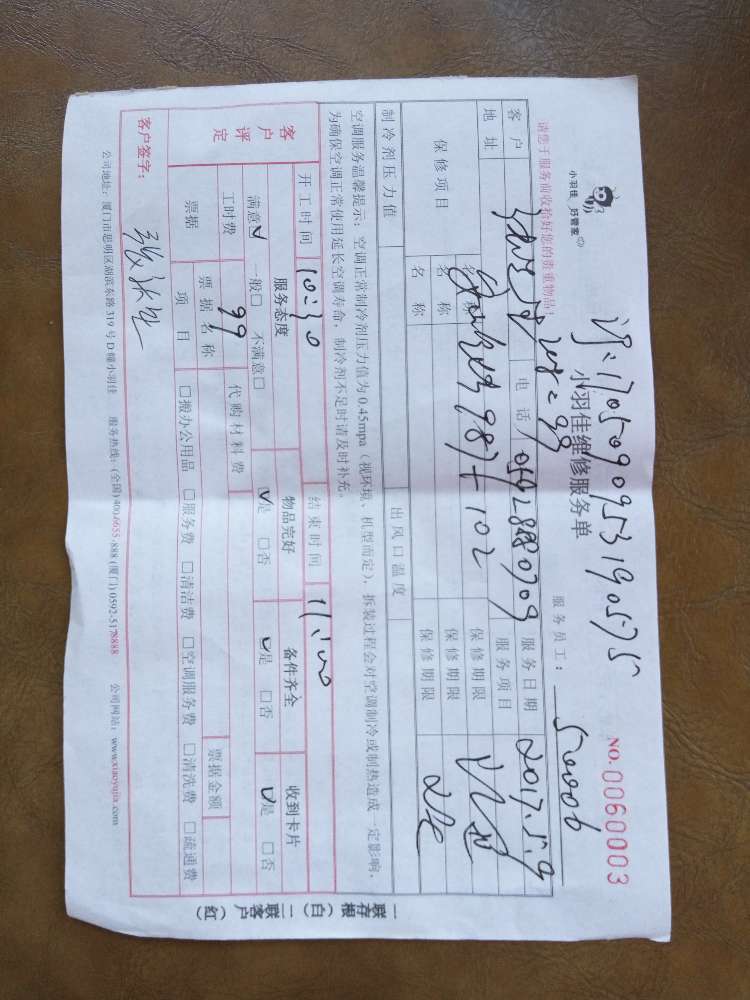 小羽佳 好管家
小羽佳维修服务单
NO.0060003
请您于服务前收拾好您的贵重物品!
服务员工: 50006
客户 电话 05928880709 服务日期 2017.5.9
地址 服务项目
保修项目 名称 保修期限
名称 保修期限
名称 保修期限
制冷剂压力值 出风口温度
空调服务温馨提示:空调正常制冷剂压力值为0.45mpa(视环境、机型而定),拆装过程会对空调制冷或制热造成一定影响,
为确保空调正常使用延长空调寿命,制冷剂不足时请及时补充。
开工时间 10:30 结束时间 11:00
客户评定
服务态度 物品完好 备件齐全 收到卡片
满意☑ 一般□ 不满意□ ☑是 □否 ☑是 □否 ☑是 □否
工时费 99 代购材料费
票据 票据名称 票据金额
项目 □搬办公用品 □服务费 □清洁费 □空调服务费 □清洗费 □疏通费
客户签字:
公司地址:厦门市思明区湖滨东路319号D幢小羽佳 服务热线:(全国)400-6655-888 (厦门)0592-5178888 公司网站:www.xiaoyujia.com
一联存根(白) 二联客户(红)